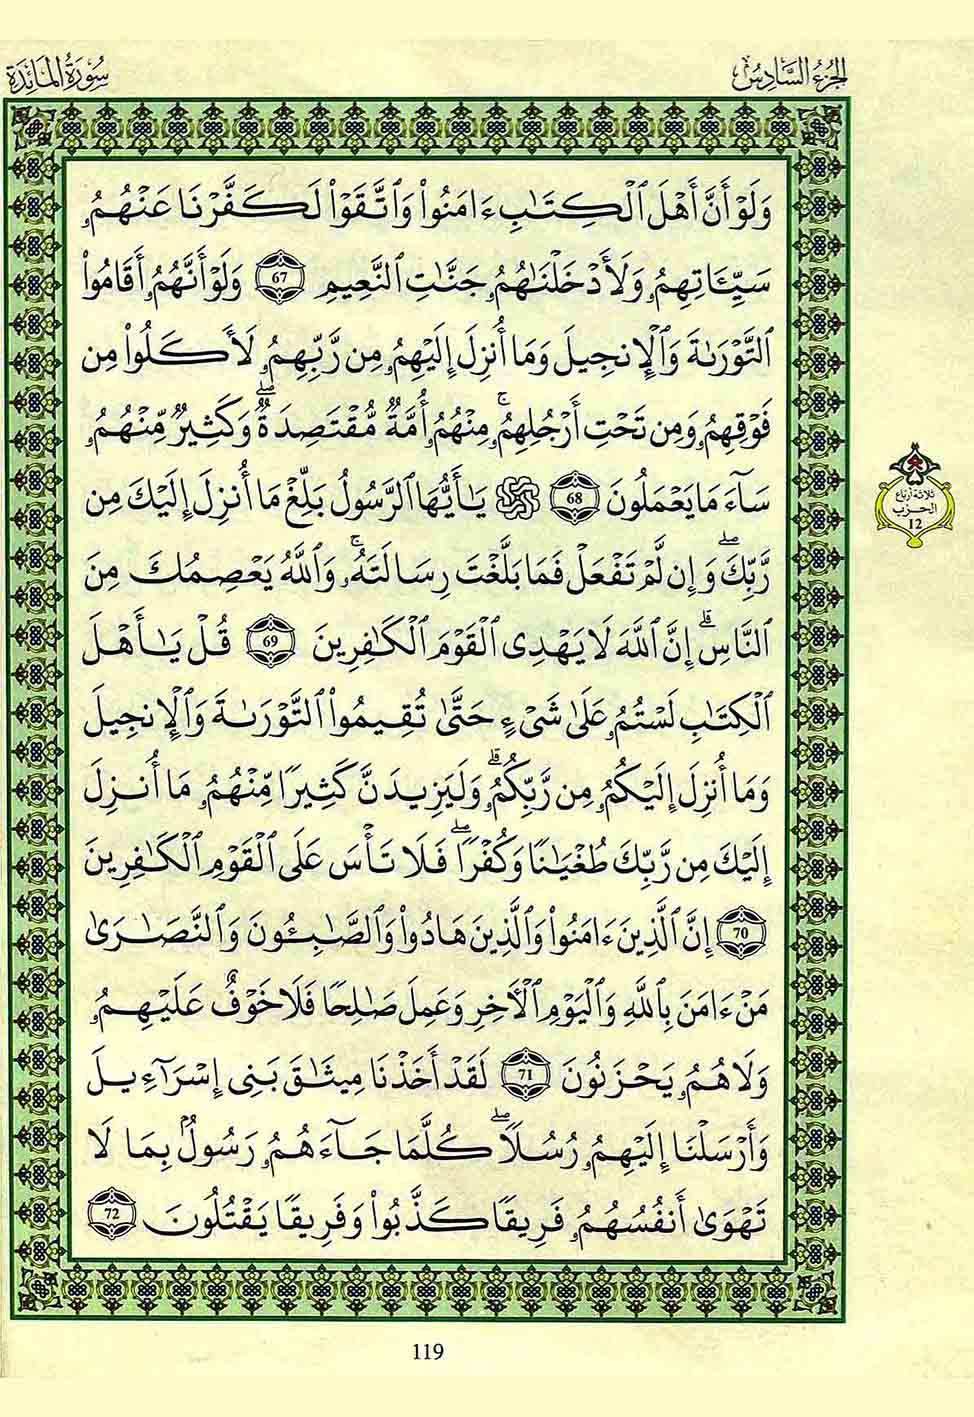 الجزء السادس
سورة المائدة
وَلَوْ أَنَّ أَهْلَ اَ۬لْكِتَٰبِ ءَامَنُواْ وَاتَّقَوْاْ لَكَفَّرْنَا عَنْهُمُۥ
سَيِّـَٔاتِهِمُۥ وَلَأَدْخَلْنَٰهُمُۥ جَنَّٰتِ اِ۬لنَّعِيمِ 67 وَلَوْ أَنَّهُمُۥ أَقَامُواْ
اُ۬لتَّوْرَىٰةَ وَالْإِنجِيلَ وَمَا أُنزِلَ إِلَيْهِمُۥ مِن رَّبِّهِمُۥ لَأَكَلُواْ مِن
فَوْقِهِمُۥ وَمِن تَحْتِ أَرْجُلِهِمُۥۚ مِنْهُمُۥ أُمَّةٌ مُّقْتَصِدَةٌۖ وَكَثِيرٌ مِّنْهُمُۥ
سَآءَ مَا يَعْمَلُونَ 68 ۞ يَٰأَيُّهَا اَ۬لرَّسُولُ بَلِّغْ مَا أُنزِلَ إِلَيْكَ مِن
رَّبِّكَۖ وَإِن لَّمْ تَفْعَلْ فَمَا بَلَّغْتَ رِسَالَتَهُۥۚ وَاللَّهُ يَعْصِمُكَ مِنَ
اَ۬لنَّاسِۗ إِنَّ اَ۬للَّهَ لَا يَهْدِى اِ۬لْقَوْمَ اَ۬لْكَٰفِرِينَ 69 قُلْ يَٰأَهْلَ
اَ۬لْكِتَٰبِ لَسْتُمُۥ عَلَىٰ شَىْءٍ حَتَّىٰ تُقِيمُواْ اُ۬لتَّوْرَىٰةَ وَالْإِنجِيلَ
وَمَا أُنزِلَ إِلَيْكُمُۥ مِن رَّبِّكُمُۥۗ وَلَيَزِيدَنَّ كَثِيرًا مِّنْهُمُۥ مَا أُنزِلَ
إِلَيْكَ مِن رَّبِّكَ طُغْيَٰنًا وَكُفْرًاۖ فَلَا تَأْسَ عَلَى اَ۬لْقَوْمِ اِ۬لْكَٰفِرِينَ
70 إِنَّ اَ۬لَّذِينَ ءَامَنُواْ وَالَّذِينَ هَادُواْ وَالصَّٰبِـُٔونَ وَالنَّصَٰرَىٰ
مَنْ ءَامَنَ بِاللَّهِ وَالْيَوْمِ اِ۬لْأٓخِرِ وَعَمِلَ صَٰلِحًا فَلَا خَوْفٌ عَلَيْهِمُۥ
وَلَا هُمُۥ يَحْزَنُونَ 71 لَقَدْ أَخَذْنَا مِيثَٰقَ بَنِى إِسْرَآءِيلَ
وَأَرْسَلْنَا إِلَيْهِمُۥ رُسُلًاۖ كُلَّمَا جَآءَهُمُۥ رَسُولٌ بِمَا لَا
تَهْوَىٰ أَنفُسُهُمُۥ فَرِيقًا كَذَّبُواْ وَفَرِيقًا يَقْتُلُونَ 72
ثلاثة أرباع
الحزب
12
119